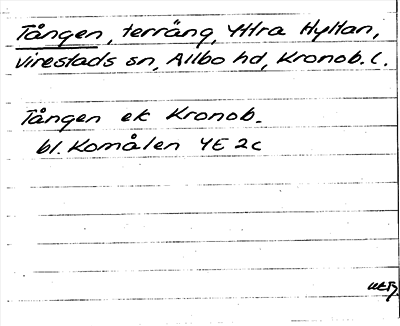 Tången, terräng, Yttra Hyltan,
Virestads sn, Allbo hd, Kronob. l.
Tången ek Kronob.
bl. Komålen 4E 2c